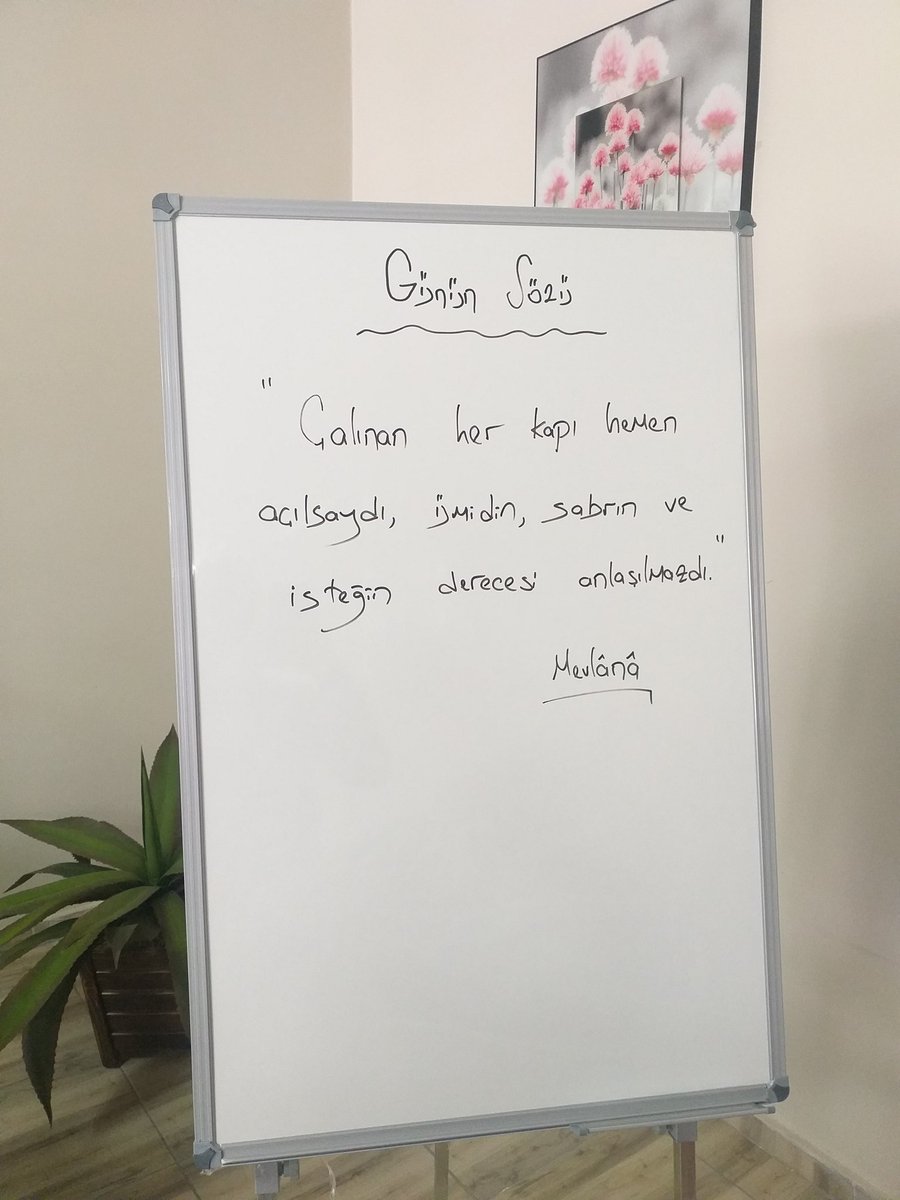 Günün Sözü
" Çalınan her kapı hemen
açılsaydı, ümidin, sabrın ve
isteğin derecesi anlaşılmazdı."
Mevlânâ